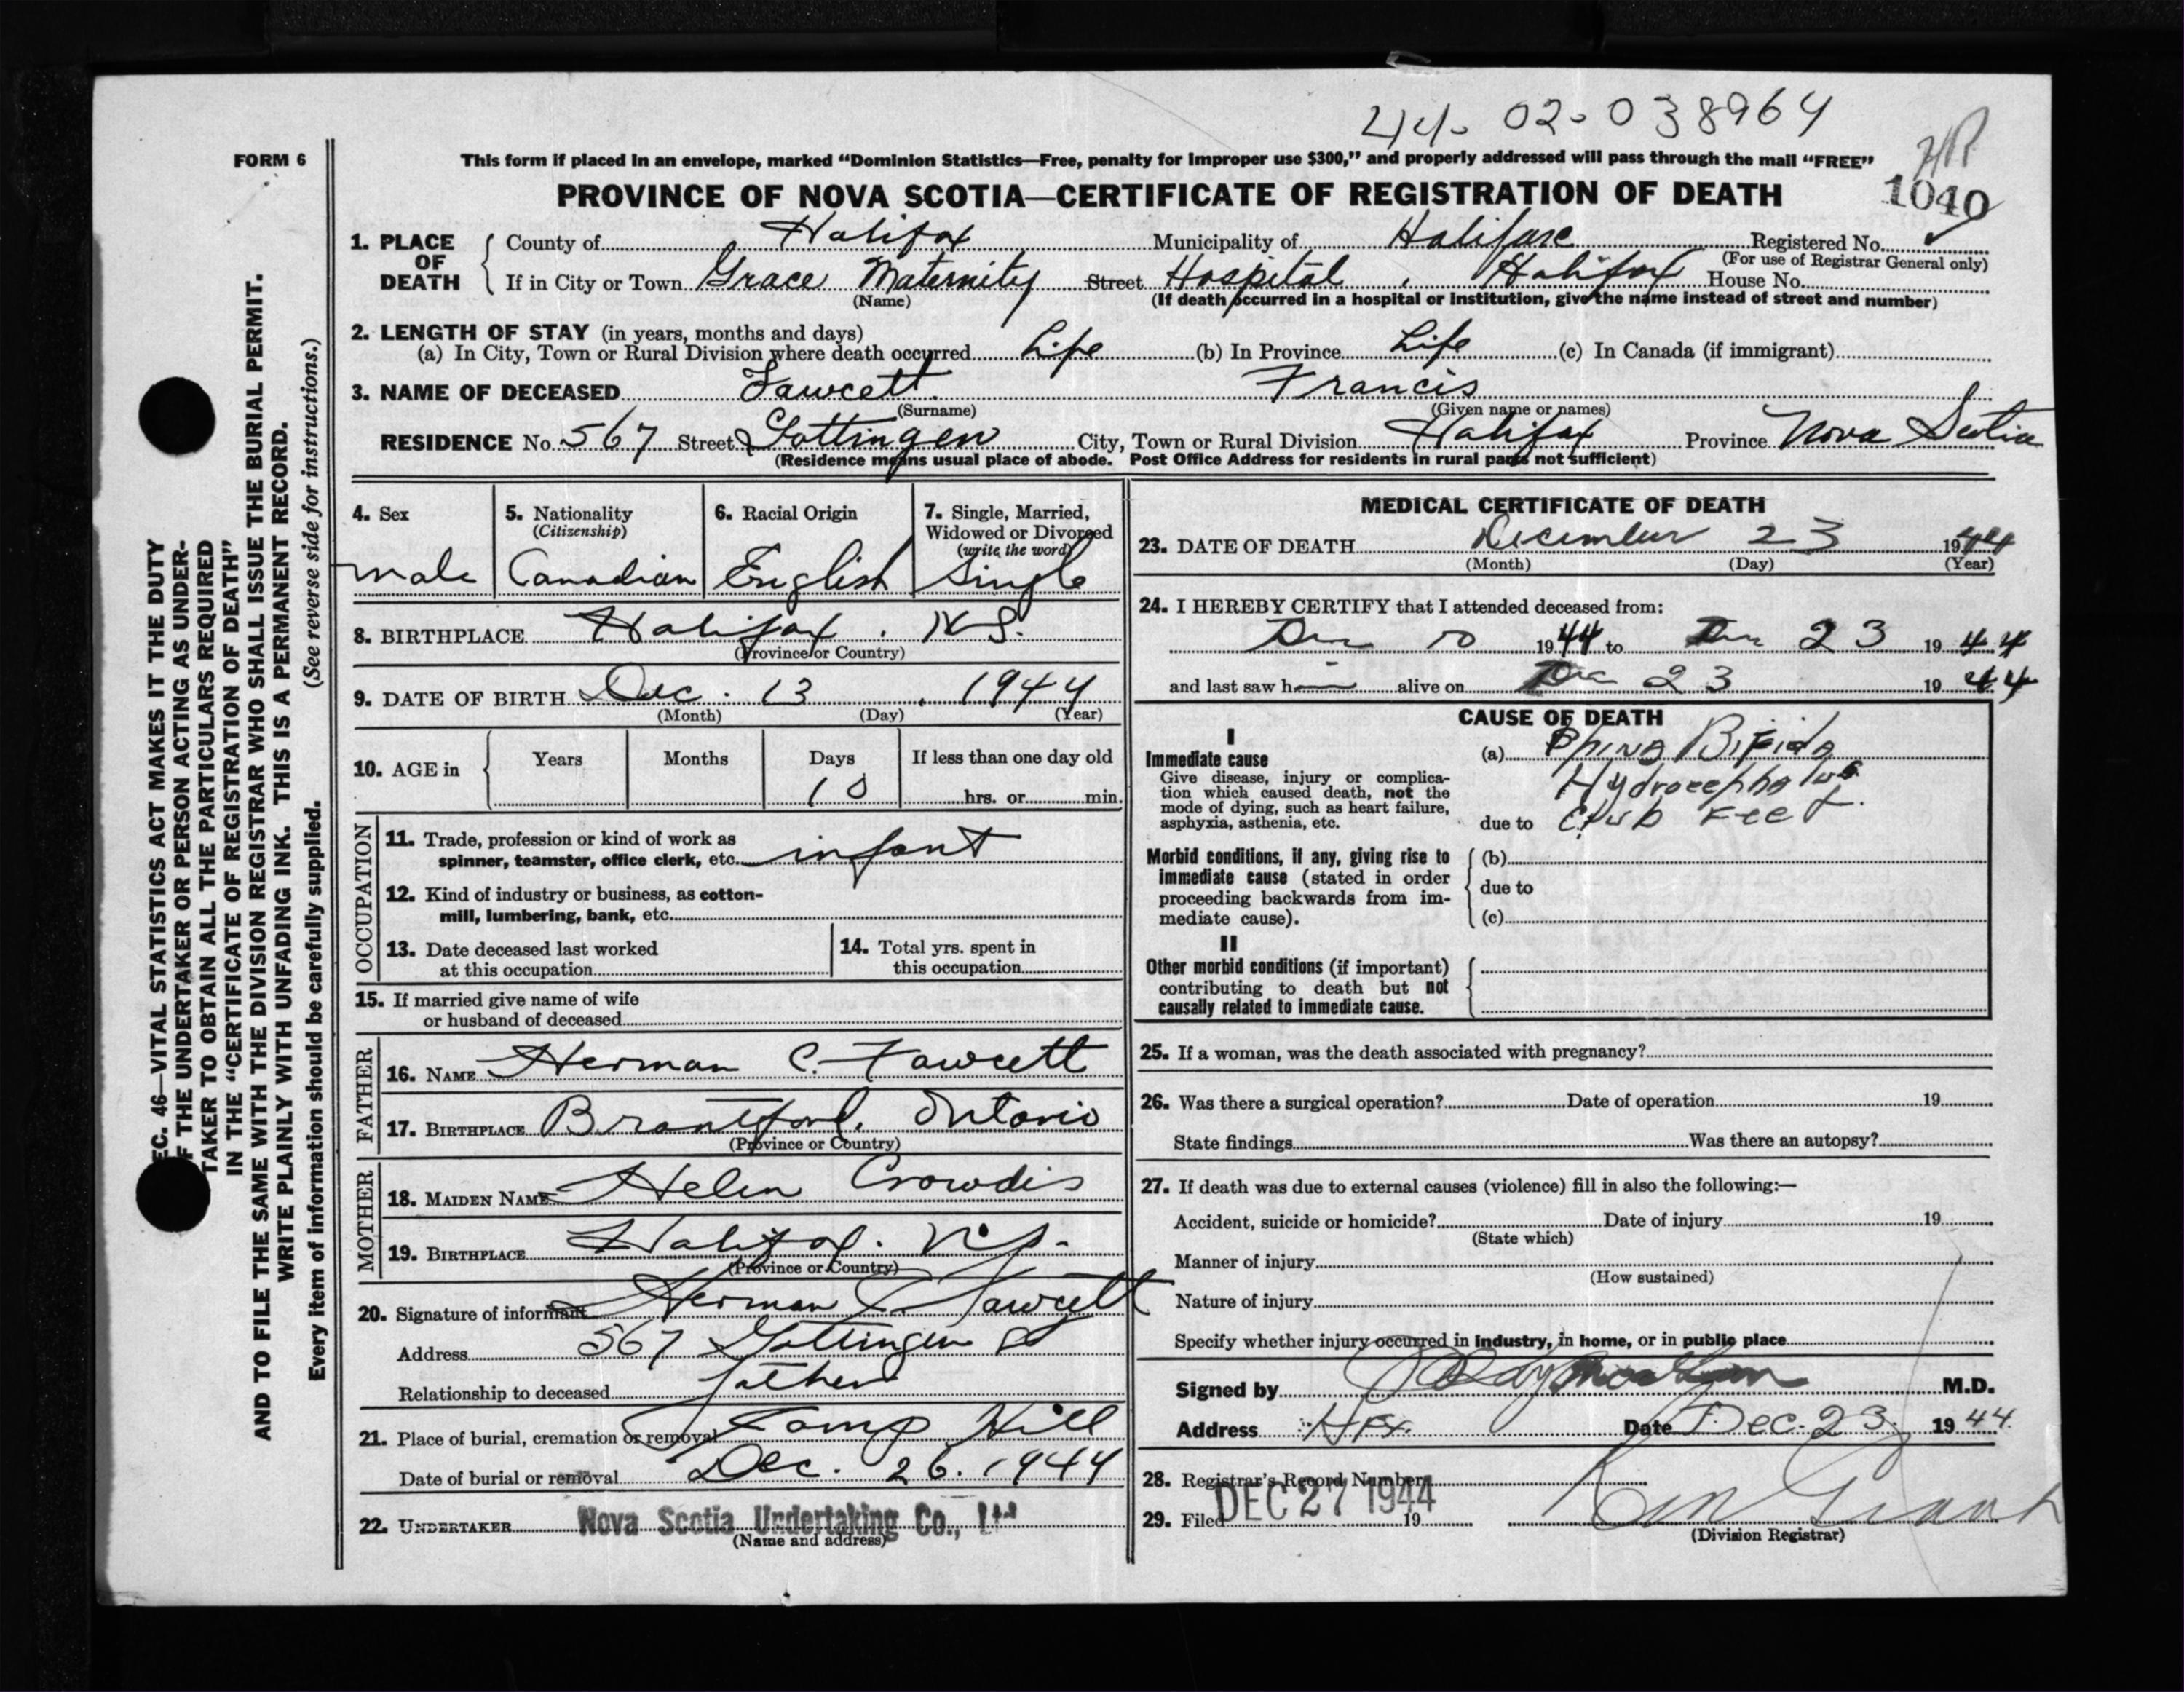 44-02-038964
FORM 6
This form if placed in an envelope, marked “Dominion Statistics—Free, penalty for improper use $300,” and properly addressed will pass through the mail “FREE”
PROVINCE OF NOVA SCOTIA—CERTIFICATE OF REGISTRATION OF DEATH
1040
1. PLACE OF DEATH
County of Halifax Municipality of Halifax Registered No.
(For use of Registrar General only)
If in City or Town Grace Maternity Street Hospital, Halifax House No.
(Name) (If death occurred in a hospital or institution, give the name instead of street and number)
2. LENGTH OF STAY (in years, months and days)
(a) In City, Town or Rural Division where death occurred Life (b) In Province Life (c) In Canada (if immigrant)
3. NAME OF DECEASED Fawcett. Francis
(Surname) (Given name or names)
RESIDENCE No. 567 Street Gottingen City, Town or Rural Division Halifax Province Nova Scotia
(Residence means usual place of abode. Post Office Address for residents in rural parts not sufficient)
4. Sex
male
5. Nationality
(Citizenship)
Canadian
6. Racial Origin
English
7. Single, Married,
Widowed or Divorced
(write the word)
Single
8. BIRTHPLACE Halifax. N.S.
(Province or Country)
9. DATE OF BIRTH Dec. 13, 1944
(Month) (Day) (Year)
10. AGE in
Years Months Days If less than one day old
10 hrs. or min.
OCCUPATION
11. Trade, profession or kind of work as
spinner, teamster, office clerk, etc. infant
12. Kind of industry or business, as cotton-
mill, lumbering, bank, etc.
13. Date deceased last worked
at this occupation
14. Total yrs. spent in
this occupation
15. If married give name of wife
or husband of deceased
FATHER
16. NAME Herman C. Fawcett
17. BIRTHPLACE Brantford. Ontario
(Province or Country)
MOTHER
18. MAIDEN NAME Helen Crowdis
19. BIRTHPLACE Halifax. N.S.
(Province or Country)
20. Signature of informant Herman C Fawcett
Address 567 Gottingen St
Relationship to deceased father
21. Place of burial, cremation or removal Camp Hill
Date of burial or removal Dec. 26. 1944
22. UNDERTAKER Nova Scotia Undertaking Co., Ltd
(Name and address)
MEDICAL CERTIFICATE OF DEATH
23. DATE OF DEATH December 23 1944
(Month) (Day) (Year)
24. I HEREBY CERTIFY that I attended deceased from:
Dec 1944 to Dec 23 1944
and last saw h alive on Dec 23 1944
CAUSE OF DEATH
I
Immediate cause
Give disease, injury or complica-
tion which caused death, not the
mode of dying, such as heart failure,
asphyxia, asthenia, etc.
(a) Spina Bifida
Hydrocephalus
due to Club Feet.
Morbid conditions, if any, giving rise to
immediate cause (stated in order
proceeding backwards from im-
mediate cause).
(b)
due to
(c)
II
Other morbid conditions (if important)
contributing to death but not
causally related to immediate cause.
25. If a woman, was the death associated with pregnancy?
26. Was there a surgical operation? Date of operation 19
State findings Was there an autopsy?
27. If death was due to external causes (violence) fill in also the following:—
Accident, suicide or homicide? Date of injury 19
(State which)
Manner of injury
(How sustained)
Nature of injury
Specify whether injury occurred in industry, in home, or in public place
Signed by M.D.
Address Hfx. Date Dec. 23 1944.
28. Registrar's Record Number
29. Filed DEC 27 1944 19
(Division Registrar)
EC. 46—VITAL STATISTICS ACT MAKES IT THE DUTY
F THE UNDERTAKER OR PERSON ACTING AS UNDER-
TAKER TO OBTAIN ALL THE PARTICULARS REQUIRED
IN THE “CERTIFICATE OF REGISTRATION OF DEATH”
AND TO FILE THE SAME WITH THE DIVISION REGISTRAR WHO SHALL ISSUE THE BURIAL PERMIT.
WRITE PLAINLY WITH UNFADING INK. THIS IS A PERMANENT RECORD.
Every item of information should be carefully supplied. (See reverse side for instructions.)